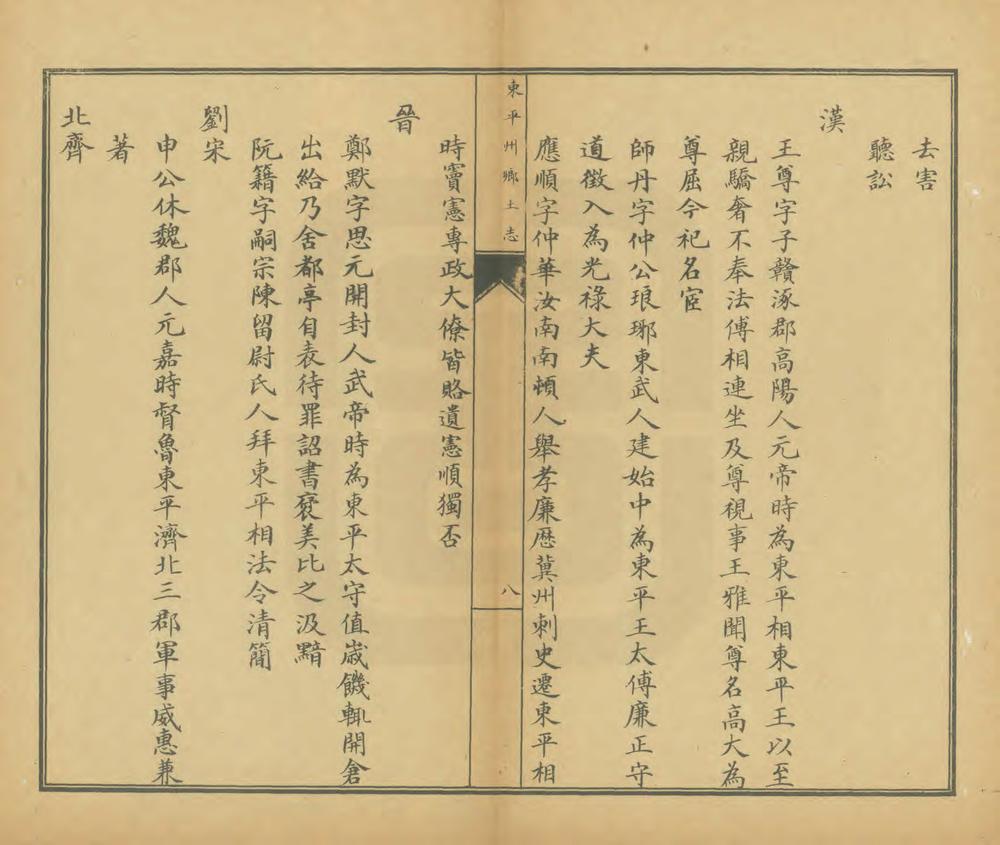 去害
聽訟
漢
王尊字子贛涿郡高陽人元帝時為東平相東平王以至
親驕奢不奉法傅相連坐及尊視事王雅聞尊名高大為
尊屈今祀名宦
師丹字仲公琅琊東武人建始中為東平王太傅廉正守
道徵入為光祿大夫
應順字仲華汝南南頓人舉孝廉歷冀州刺史遷東平相
東平州鄉土志
八
時竇憲專政大僚皆賂遺憲順獨否
晉
鄭默字思元開封人武帝時為東平太守值歲饑輒開倉
出給乃舍都亭自表待罪詔書褒美比之汲黯
阮籍字嗣宗陳留尉氏人拜東平相法令清簡
劉宋
申公休魏郡人元嘉時督魯東平濟北三郡軍事威惠兼
著
北齊